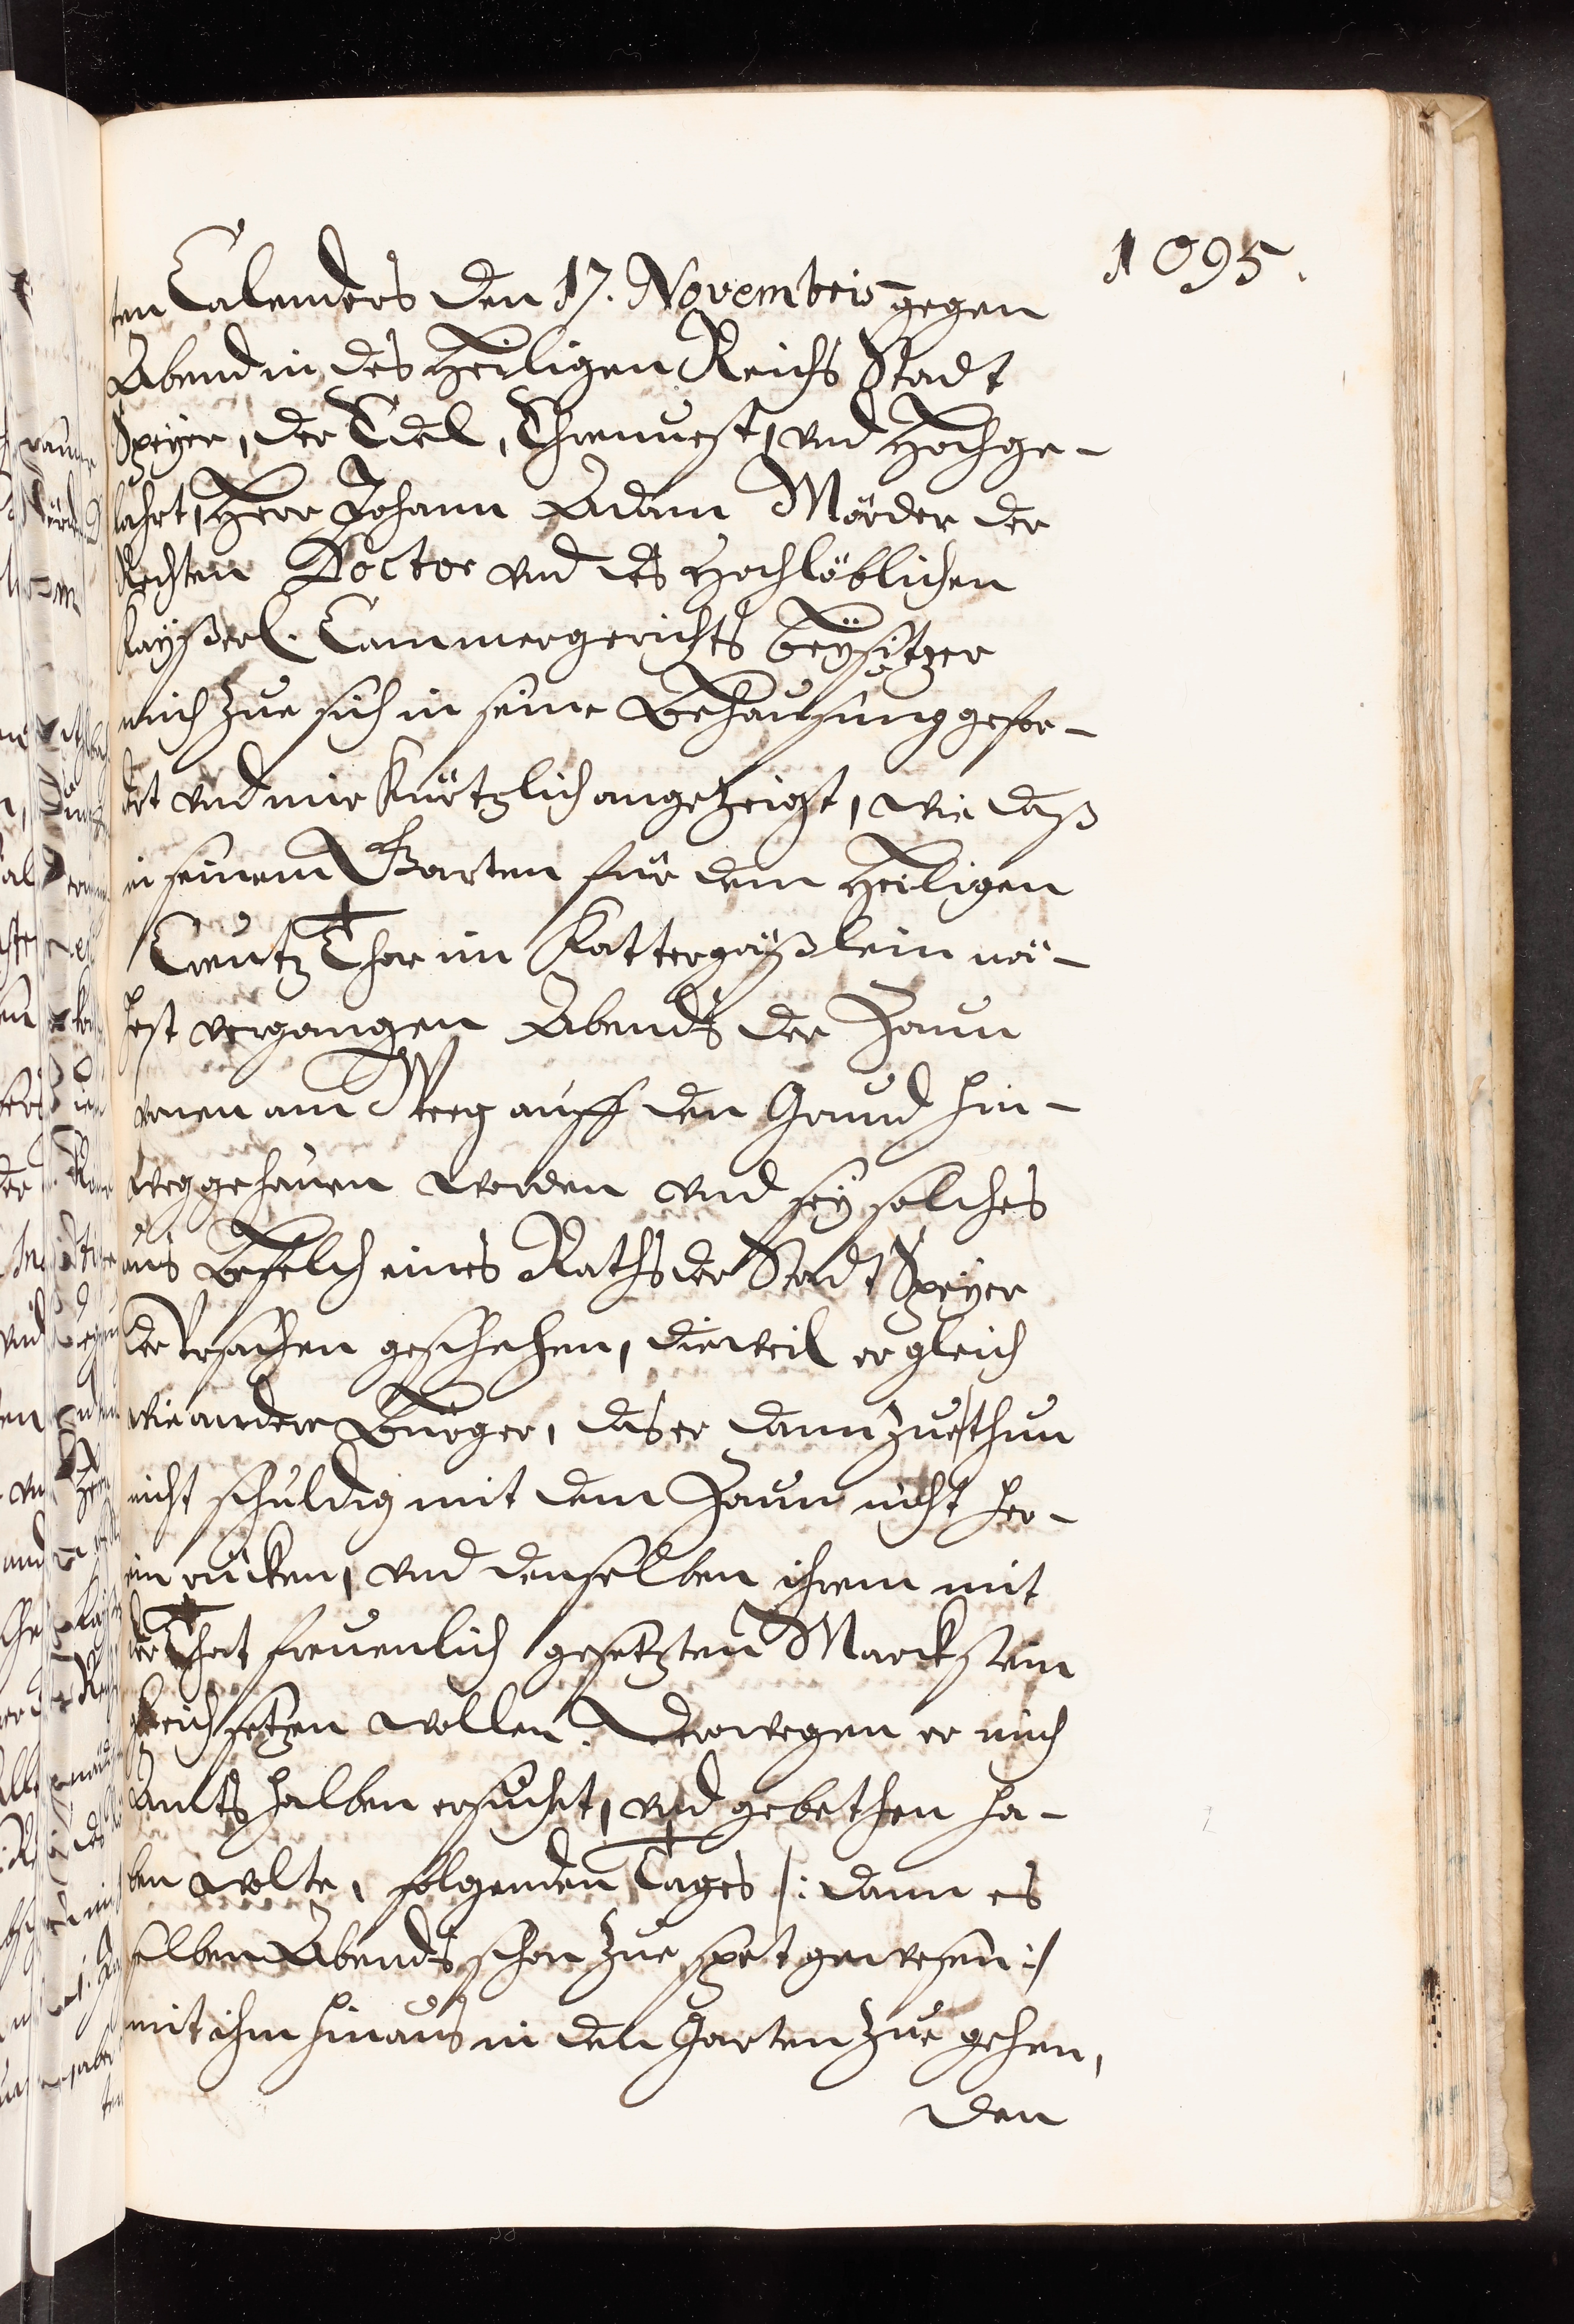 1095.
ten Calenders den 17. Novembris gegen
Abend in des Heiligen Reichs Stadt
Speyer, der Edel, Ehrnuest, vnd Hochge-
lahrt, Herr Johann Adam Mörder der
Rechten Doctor vnd des Hochlöblichen
Kayßerl. Cammergerichts beysitzer
mich zue sich in seine Behausung gefor-
dert vnd mir kürtzlich angezeigt, wie daß
in seinem Garten für dem Heiligen
Creutz Thor im Kattergäßlein nä-
hest vergangen Abends der Zaun
vornen am Weeg auff den Grund hin-
weggehauen worden vnd sey solches
aus Befelch eines Raths der Stadt Speyer
der Vrsachen geschehen, dieweil er gleich
wie andere Bürger, das er dann zue thun
nicht schuldig mit dem Zaun nicht her-
ein rücken, vnd denselben ihrem mit
der That freuenlich gesetzten Marckstein
gleich setzen wollen. Derowegen er mich
Ambts halben ersucht, vnd gebethen ha-
ben wolte, folgenden Tages /: dann es
selben Abends schon zue spet gewesen :/
mit ihm hinaus in den Garten zue gehen,
den